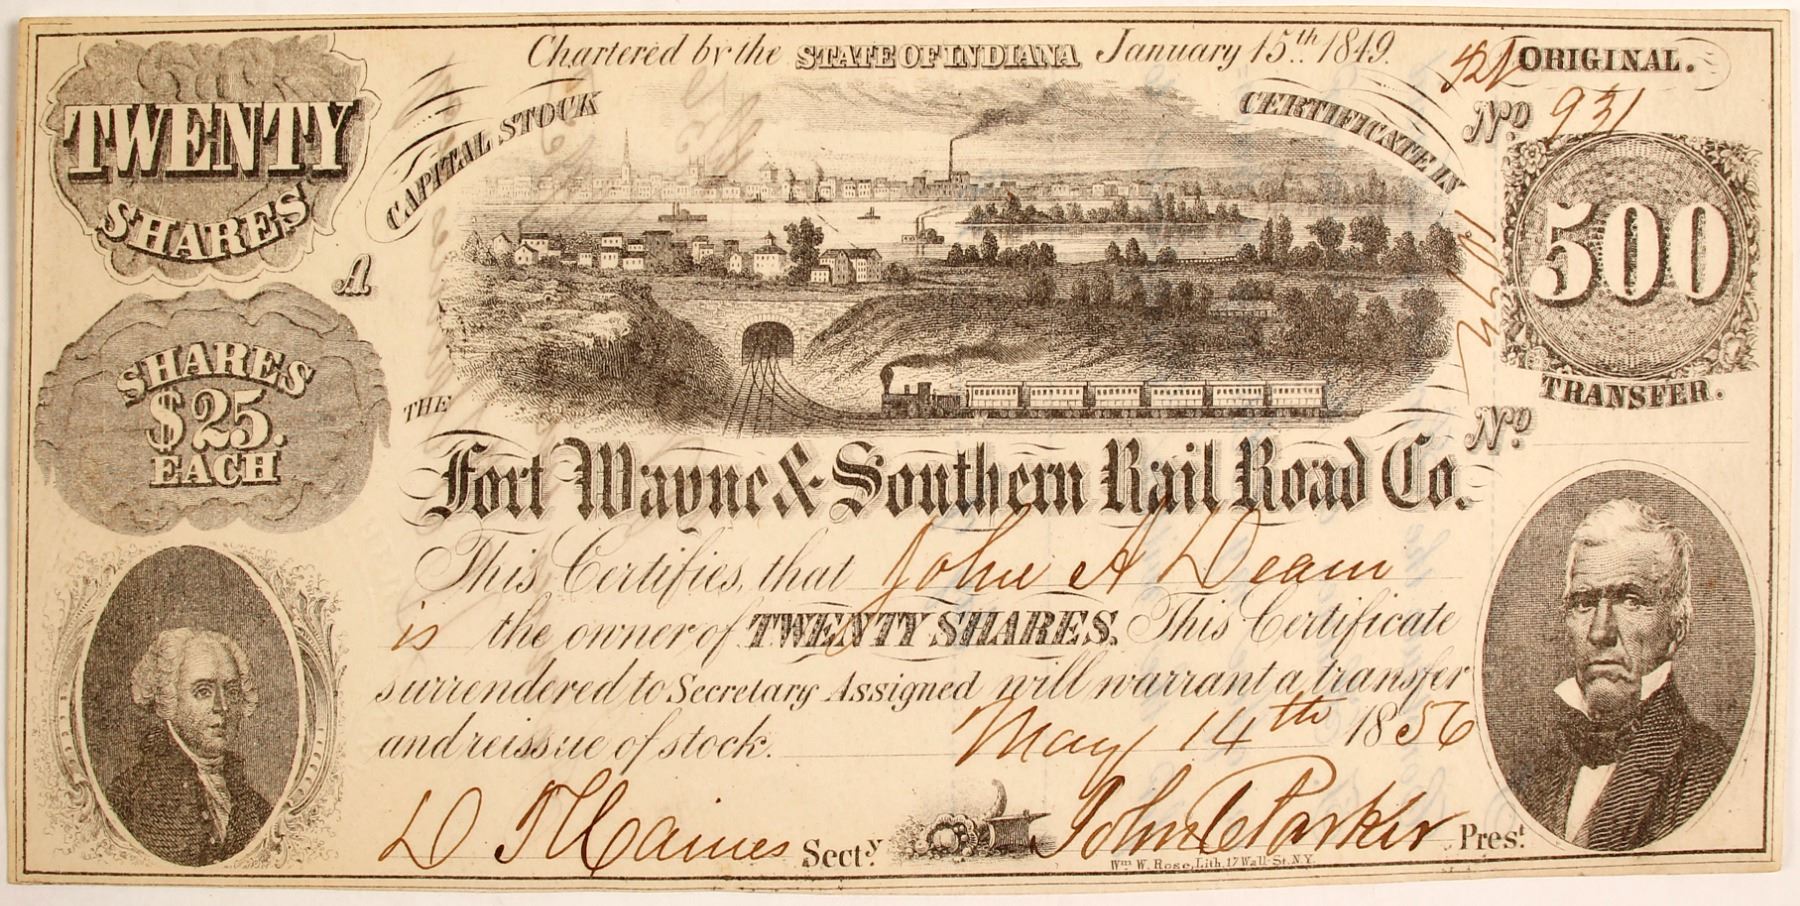 Chartered by the STATE OF INDIANA January 15th. 1849.
ORIGINAL.
No 931
TWENTY
SHARES
CAPITAL STOCK
CERTIFICATE IN
A
500
TRANSFER.
No
SHARES
$25.
EACH
THE
Fort Wayne & Southern Rail Road Co.
This Certifies, that John A Deam
is the owner of TWENTY SHARES. This Certificate
surrendered to Secretary Assigned will warrant a transfer
and reissue of stock. May 14th 1856
D T Haines Secty.
John C Parker Prest.
Wm W. Rose, Lith. 17 Wall St. N.Y.